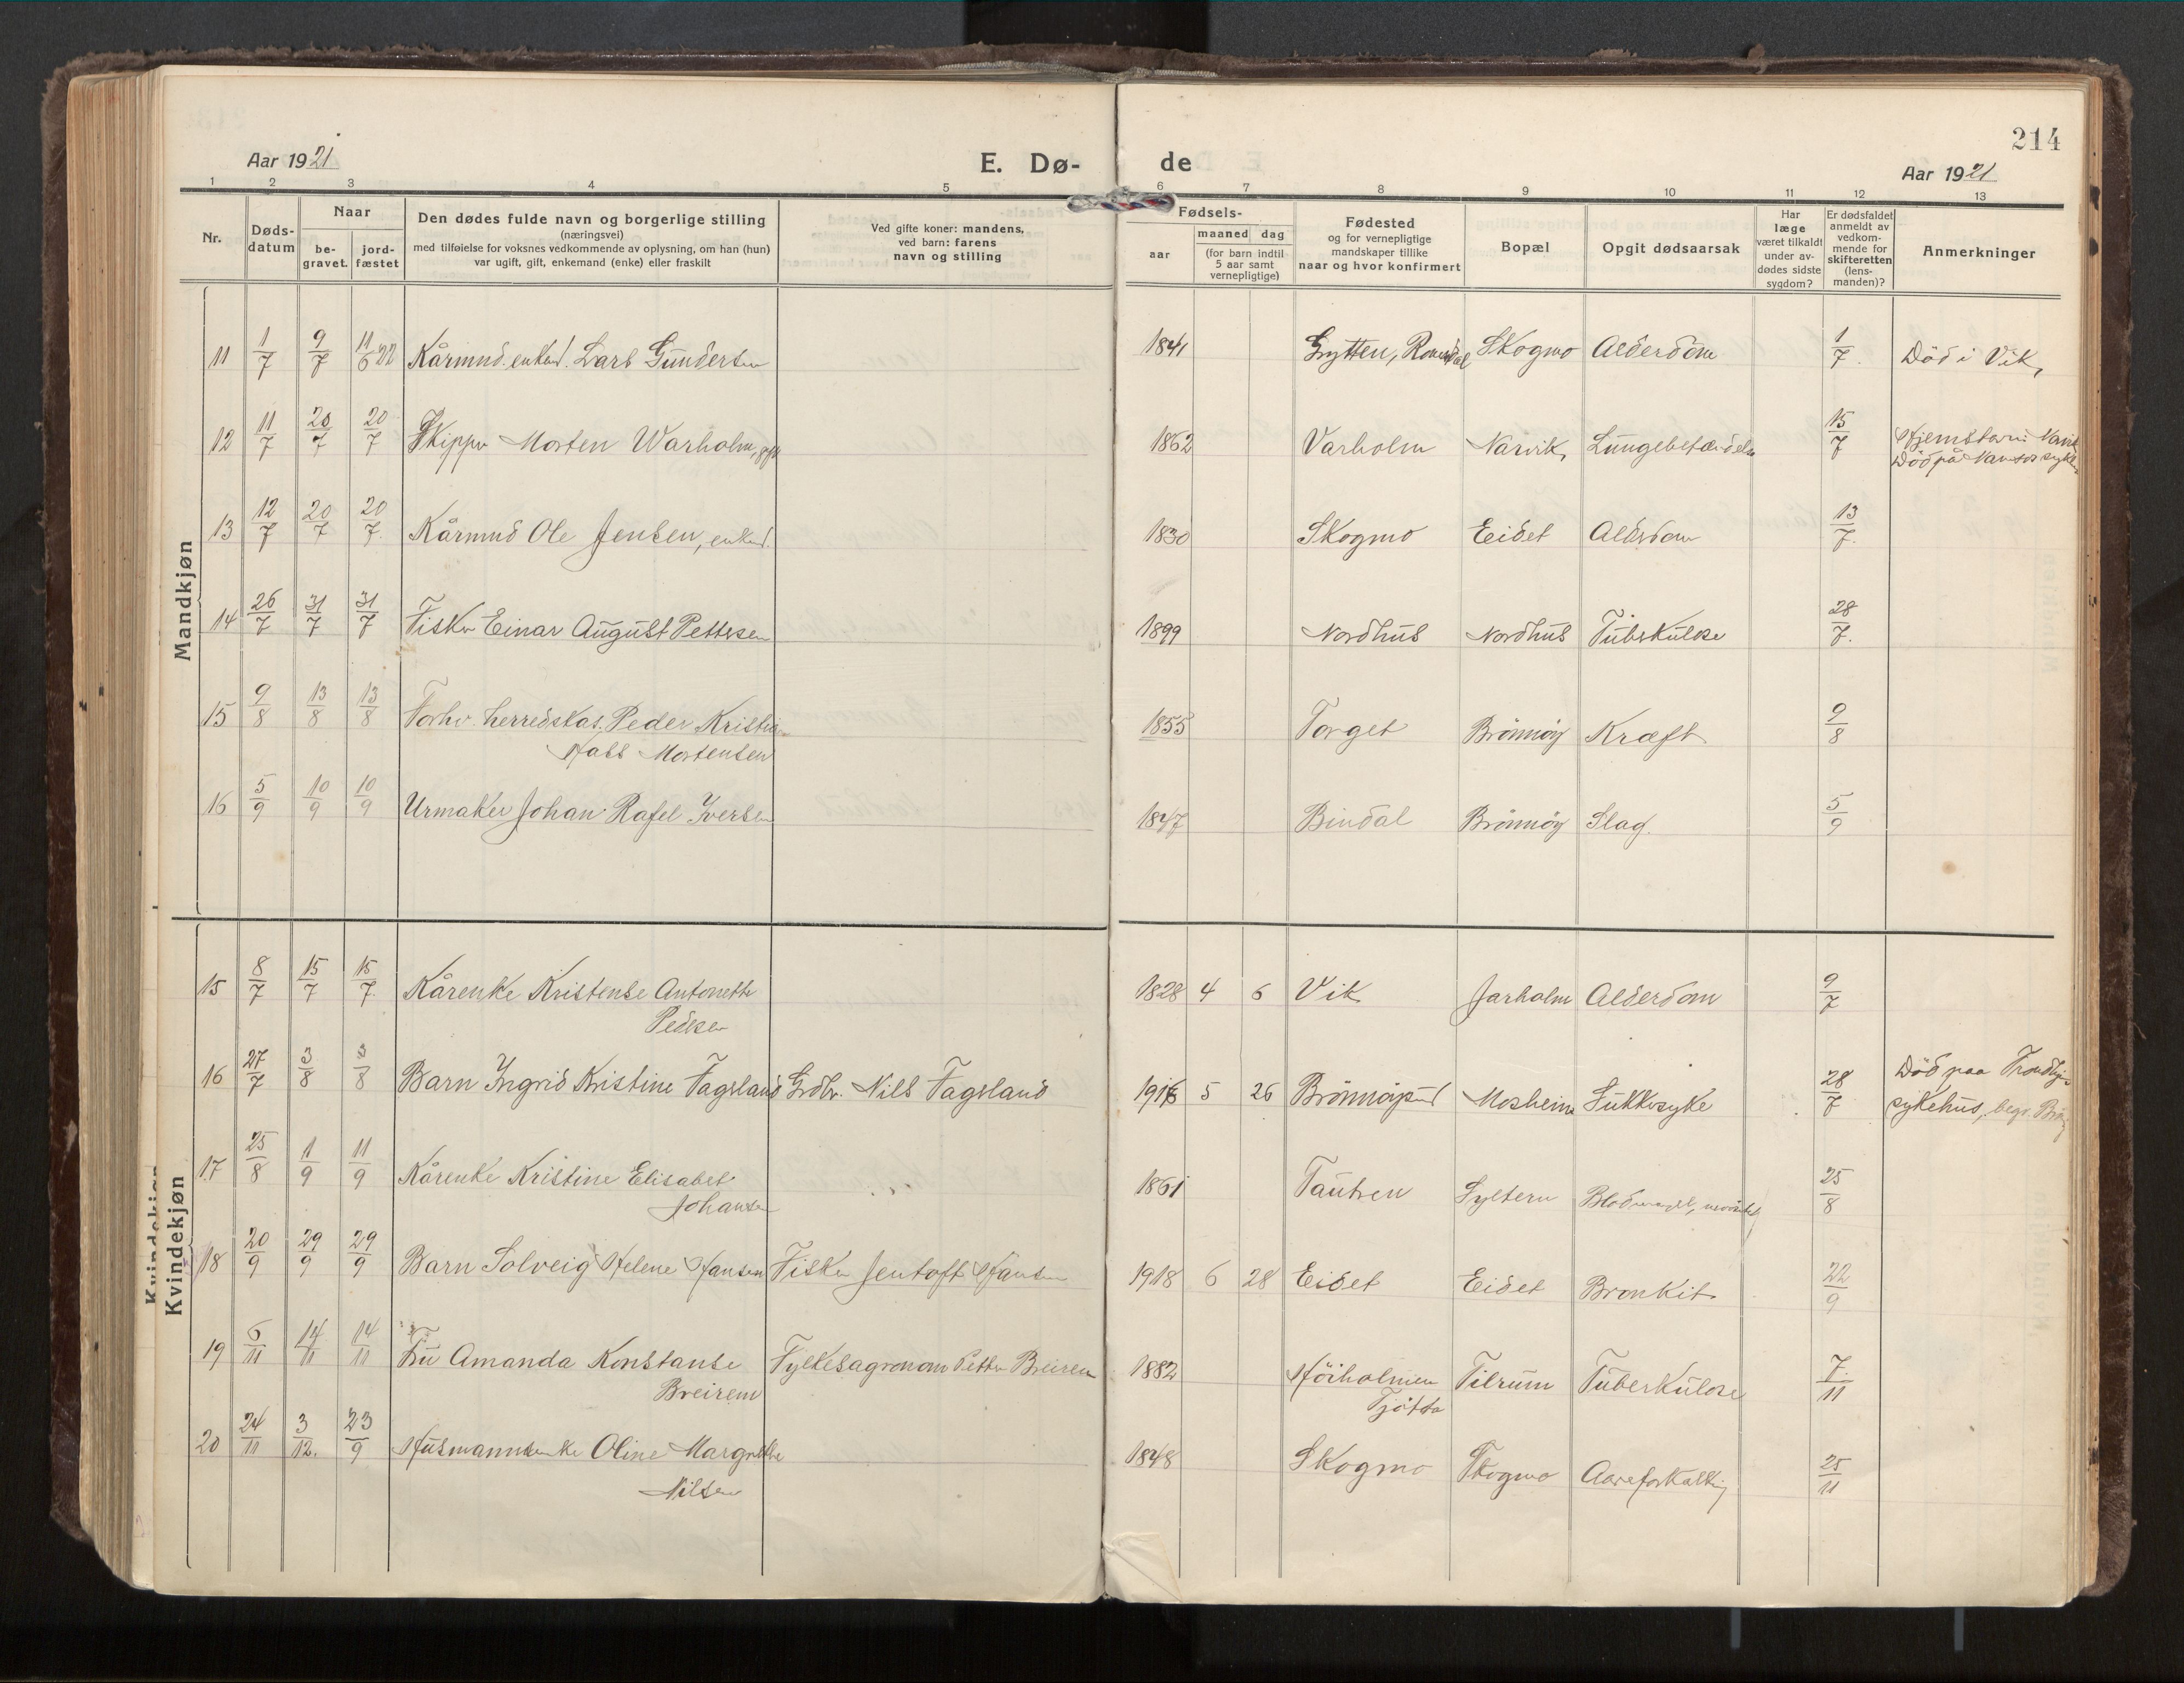 214
Aar 1921
E. Dø-
de
Aar 1921
1 2 3 4 5 6 7 8 9 10 11 12 13
Nr.
Døds-
datum
Naar
be-
gravet.
jord-
fæstet
Den dødes fulde navn og borgerlige stilling
(næringsvei)
med tilføielse for voksnes vedkommende av oplysning, om han (hun)
var ugift, gift, enkemand (enke) eller fraskilt
Ved gifte koner: mandens,
ved barn: farens
navn og stilling
Fødsels-
aar
maaned dag
(for barn indtil
5 aar samt
vernepligtige)
Fødested
og for vernepligtige
mandskaper tillike
naar og hvor konfirmert
Bopæl
Opgit dødsaarsak
Har
læge
været tilkaldt
under av-
dødes sidste
sygdom?
Er dødsfaldet
anmeldt av
vedkom-
mende for
skifteretten
(lens-
manden)?
Anmerkninger
Mandkjøn
11 1/7 9/7 11/6 22 Kårmnd. enkem. Lars Gundersen 1841 Grytten, Romsdal Skogmo Alderdom 1/7. Död i Vik,
12 11/7 20/7 20/7 Skipper Morten Warholm, gift 1862 Varholm Narvik, Lungebetændelse 15/7 Hjemstavn: Narvik
Död på Namsos sykeh.
13 12/7 20/7 20/7. Kårmnd Ole Jensen, enkem. 1830 Skogmo Eidet Alderdom 13/7.
14 26/7 31/7 31/7 Fisker Einar August Pettersen 1899 Nordhus Nordhus Tuberkulose 28/7.
15 9/8 13/8 13/8 Forhv. herredskas. Peder Kristian
Hass Mortensen 1855 Torget Brönnöy Kræft 9/8
16 5/9 10/9 10/9 Urmaker Johan Rafel Iversen 1847 Bindal Brönnöy Slag. 5/9
Kvindekjøn
15 8/7 15/7 15/7. Kårenke Kristense Antonette
Pedersen 1828 4 6 Vik Jarholm Alderdom 9/7
16 27/7 3/8 3/8 Barn Ingrid Kristine Fagerland Grdbr. Nils Fagerland 1916 5 26 Brönnöysund Mosheim Sukkersyke 28/7 Död paa Trondhjem
sykehus, begr. Brönnöy
17 25/8 1/9 11/9 Kårenke Kristine Elisabet
Johansen 1861 Tautren Syltern Blodmangel, 25/8
18 20/9 29/9 29/9 Barn Solveig Helene Hansen Fisker Jentoft Hansen 1918 6 28 Eidet Eidet Bronkit 22/9
19 6/11 14/11 14/11 Fru Amanda Konstanse
Breirem Fylkesagronom Petter Breirem 1882 Höiholmen
Tjötta Tilrum Tuberkulose 7/11
20 24/11 3/12. 23/9 Husmannsenke Oline Margrethe
Nilsen 1848 Skogmo Skogmo Aareforkalkning 25/11
Kvindekjøn